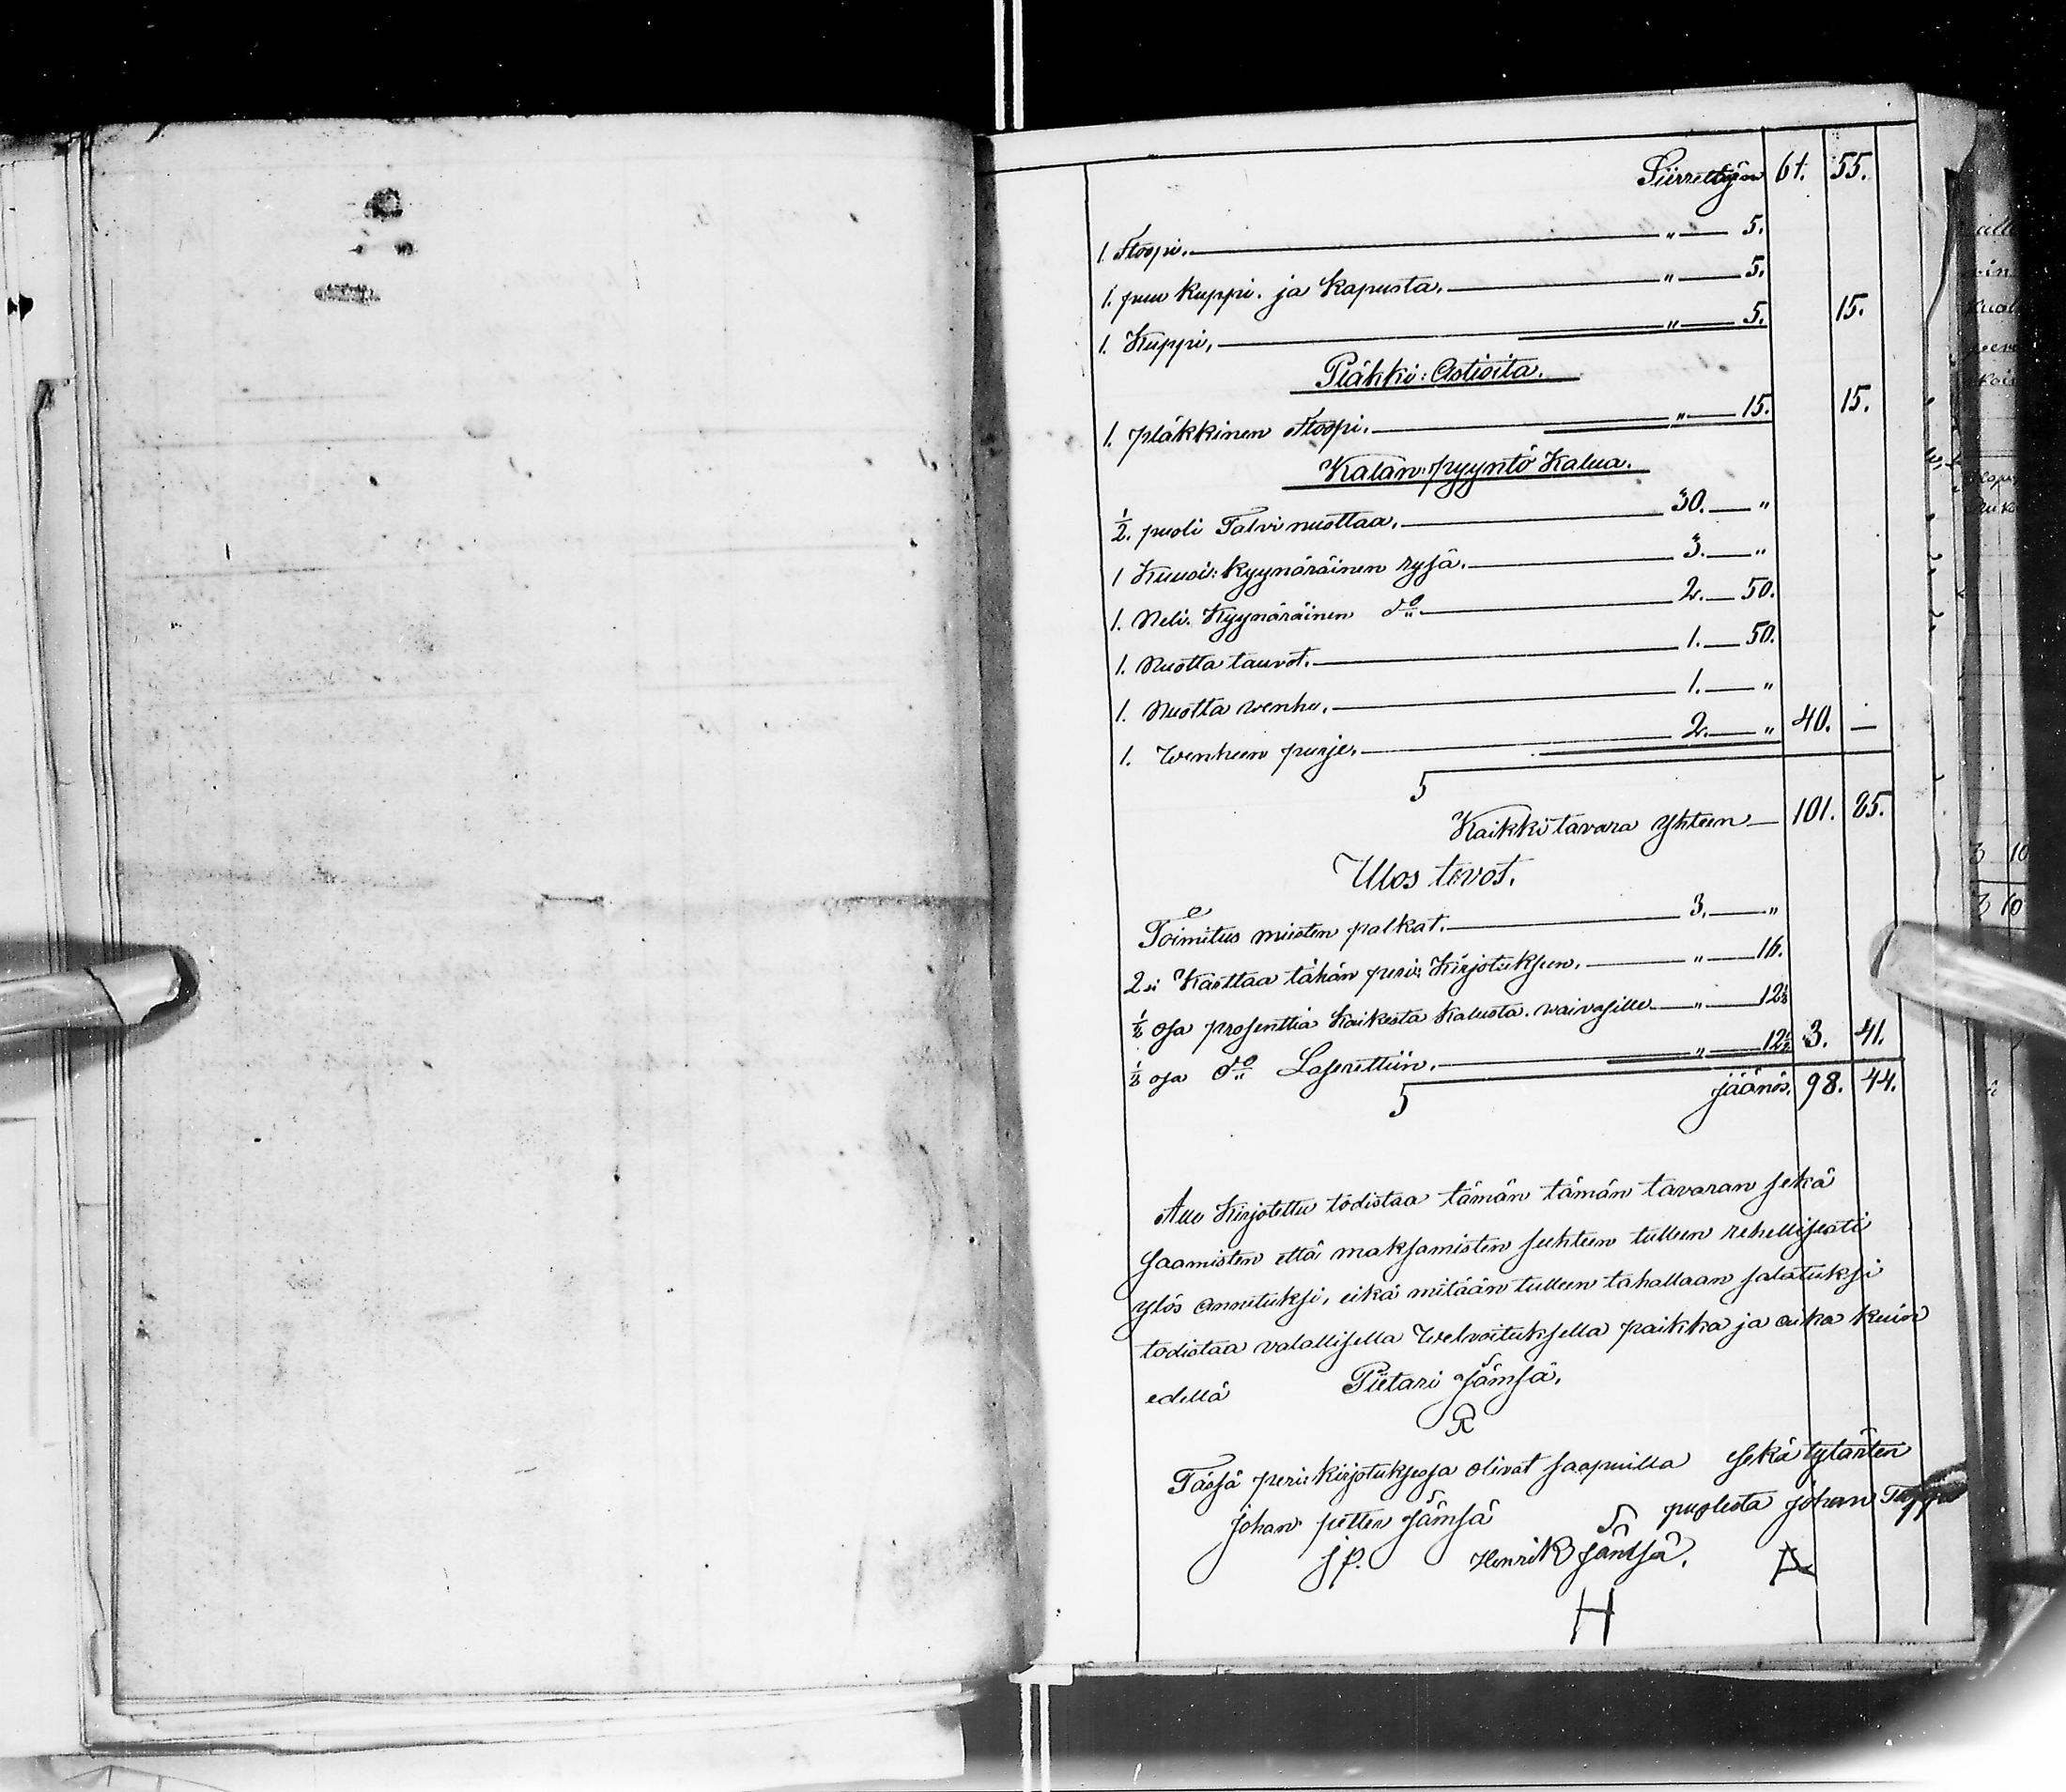 Siirrettyän 61. 55.
1. Stoopi. " 5.
1. puu kuppi. ja kapusta. " 5.
1. Kuppi. " 5. 15.
Pläkki: Astioita.
1. pläkkinen stoopi. " 15. 15.
Kalan: pyyntö Kalua.
1/2. puoli Talvi nuottaa. 30. "
1 Kuusi: kyynäräinen rysä. 3. "
1. Neli. Kyynäräinen do 2. 50.
1. Nuotta tauvot. 1. 50.
1. Nuotta wenhe. 1. "
1. Wenheen purje. 2. " 40. —
Kaikki tavara yhteen 101. 85.
Ulos tevot.
Toimitus miesten palkat. 3. "
2si Karttaa tähän peri: Kirjotukseen. " 16.
1/8 osa prosenttia kaikesta kalusta. waivasille " 12 1/2
1/8 osa do Laserettiin. " 12 1/2 3. 41.
jäänös. 98. 44.
Alle Kirjotettu todistaa tämän tämän tavaran sekä
saamisten että maksamisten suhteen tulleen rehellisesti
ylös annetuksi, eikä mitään tulleen tahallaan salatuksi
todistaa valallisella Welvoituksella paikka ja aika kuin
edellä Pietari Jämsä.
Tässä peri: kirjotuksessa olivat saapuilla sekä tytärten
Johan petter Jämsä puolesta Johan
J P. Henrik Jämsä.
H